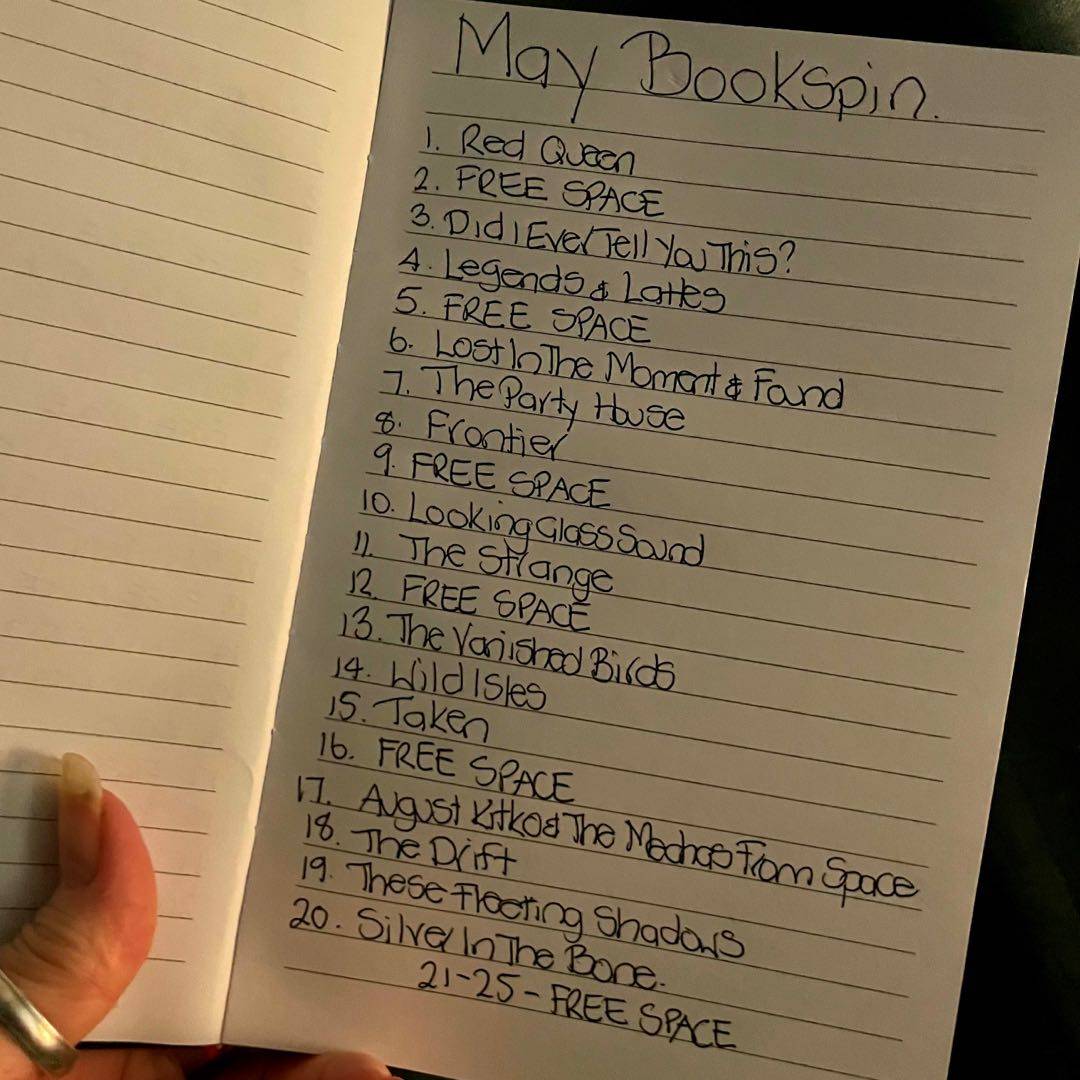 May Bookspin.
1. Red Queen
2. FREE SPACE
3. Did I Ever Tell You This?
4. Legends & Lattes
5. FREE SPACE
6. Lost In The Moment & Found
7. The Party House
8. Frontier
9. FREE SPACE
10. Looking Glass Sound
11. The Strange
12. FREE SPACE
13. The Vanished Birds
14. Wild Isles
15. Taken
16. FREE SPACE
17. August Kitko & The Mechas From Space
18. The Drift
19. These Fleeting Shadows
20. Silver In The Bone.
21-25 - FREE SPACE